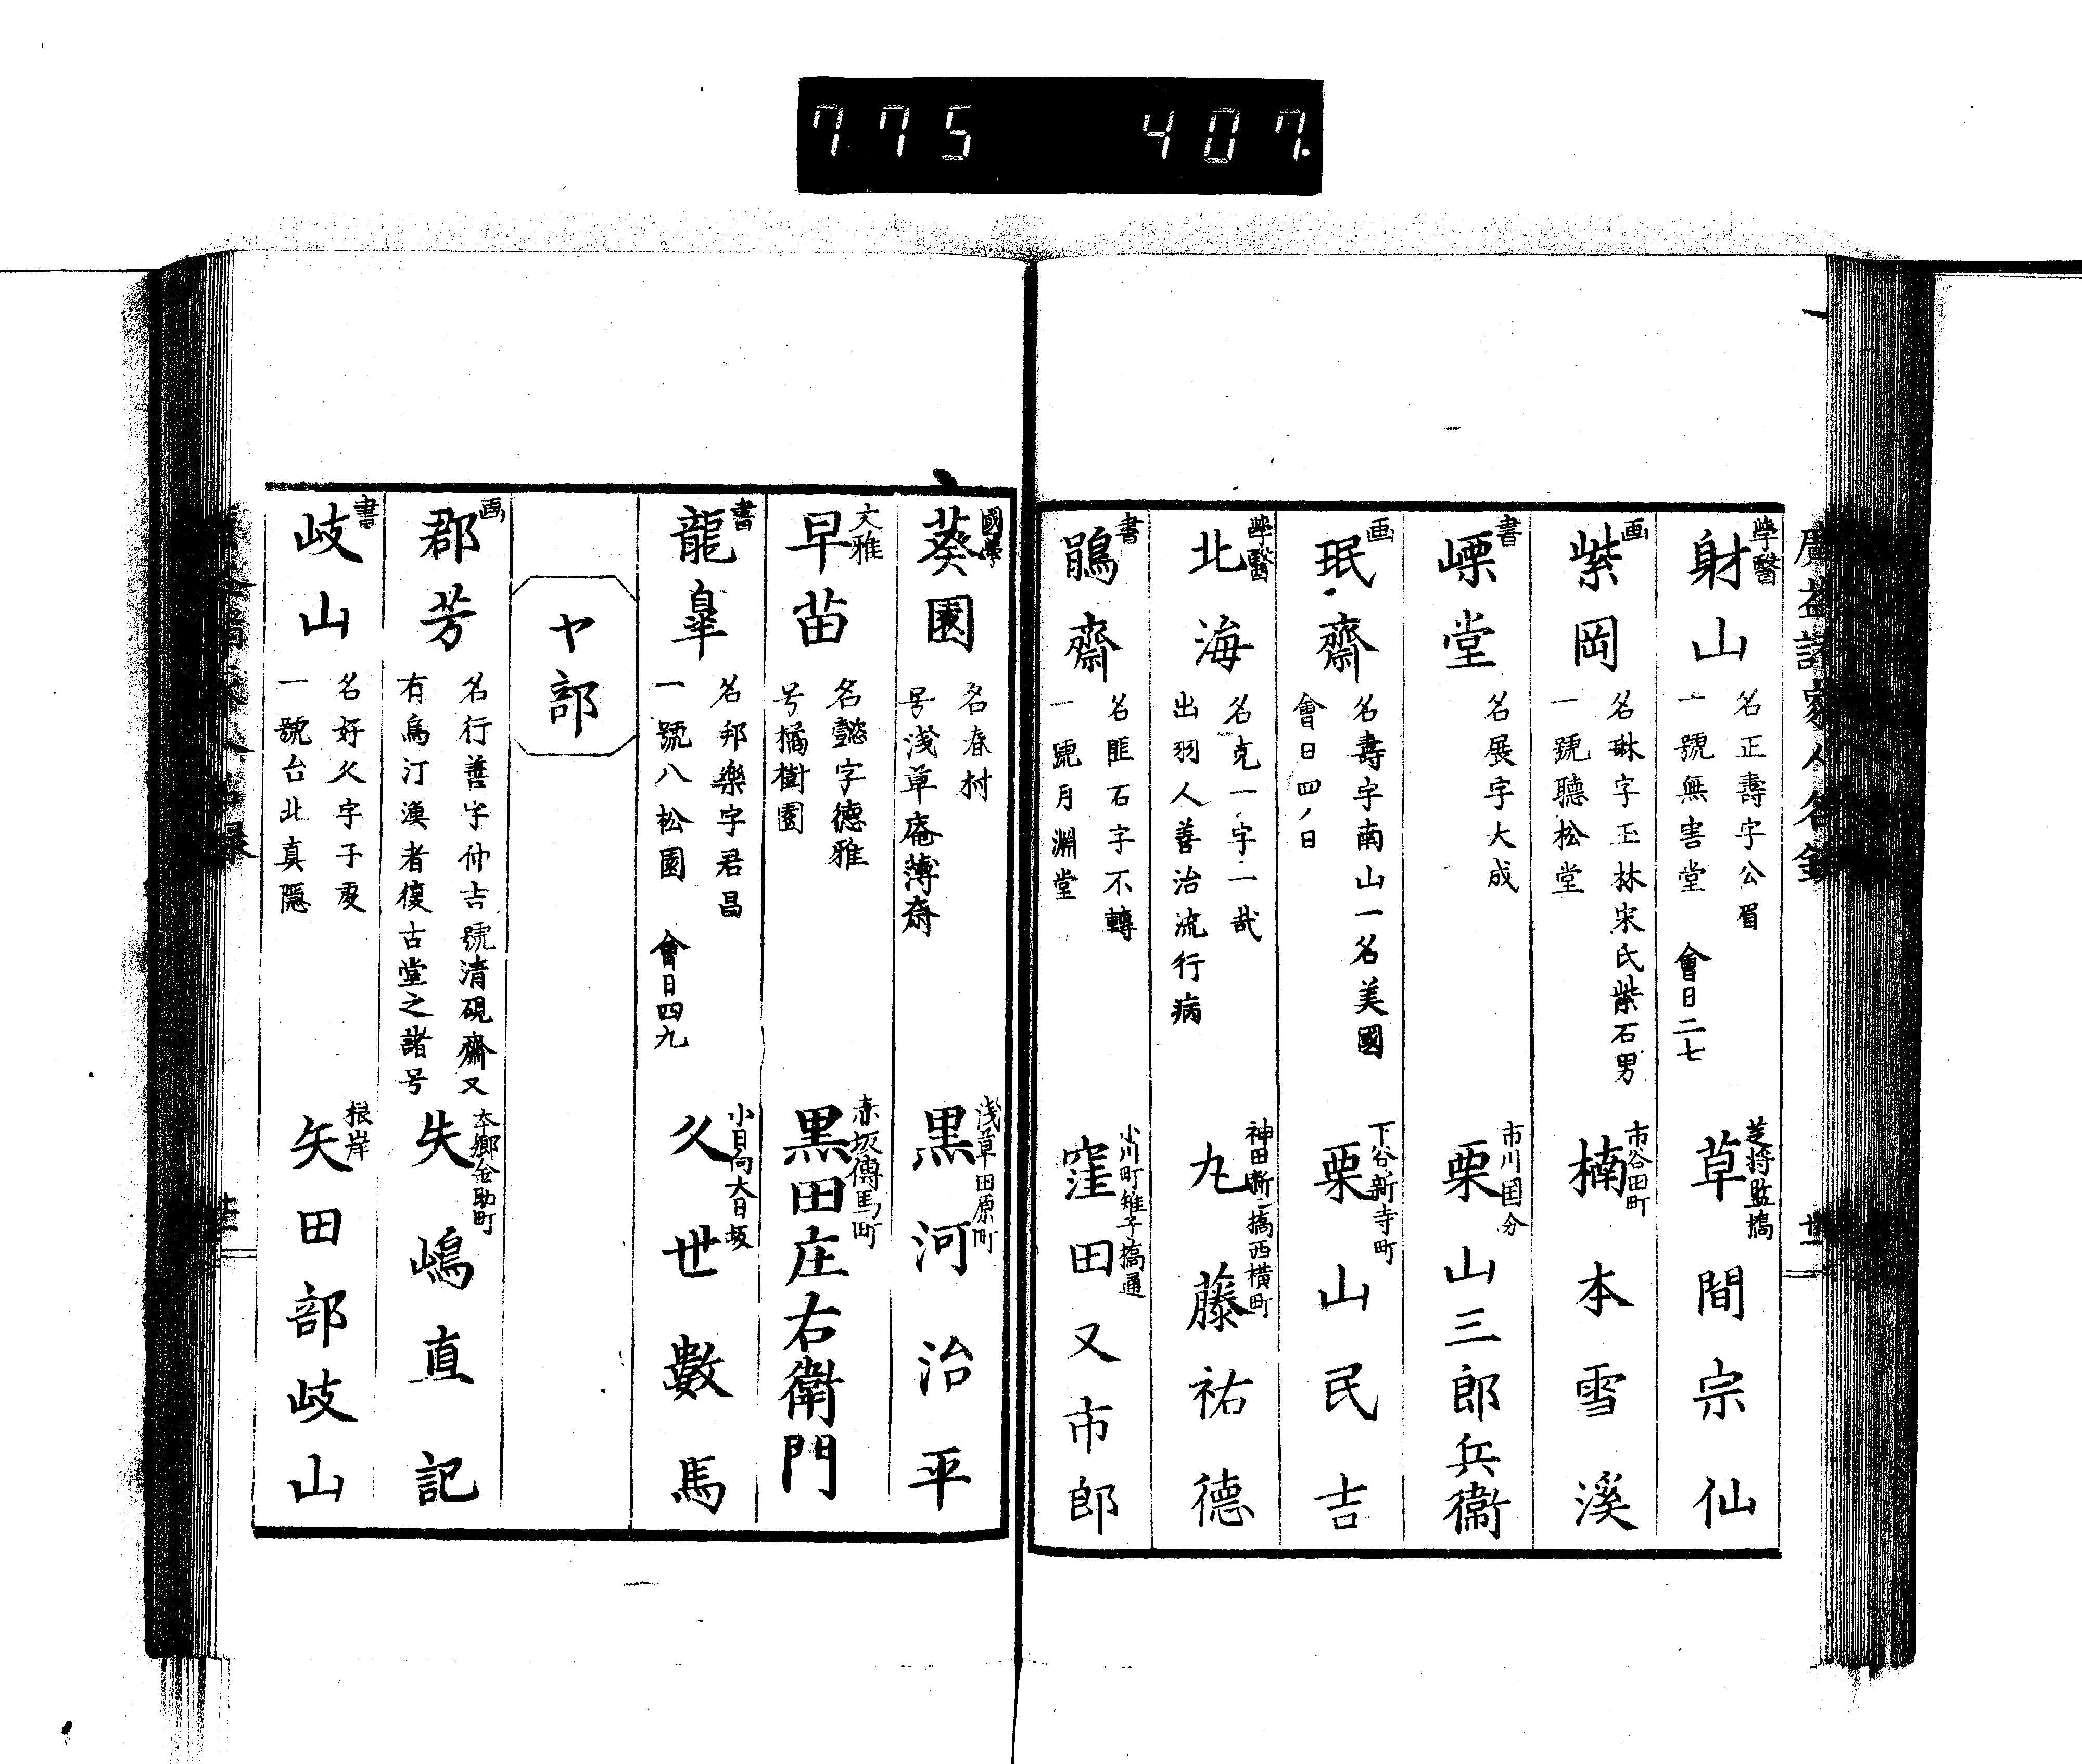 775 407.
廣益諸家人名録
學醫
射山
名正壽字公眉
一號無害堂 會日二七
芝将監橋
草間宗仙
画
紫岡
名琳字玉林宋氏紫石男
一號聽松堂
市谷田町
楠本雪溪
書
嶫堂
名展字大成
市川国分
栗山三郎兵衞
画
珉齋
名壽字南山一名美國
會日四ノ日
下谷新寺町
栗山民吉
學醫
北海
名克一字一哉
出羽人善治流行病
神田新シ橋西横町
九藤祐德
書
鵑齋
名匪石字不轉
一號月淵堂
小川町雉子橋通
窪田又市郎
國學
葵園
名春村
号浅草庵薄斎
浅草田原町
黒河治平
文雅
早苗
名懿字德雅
号橘樹園
赤坂傳馬町
黒田庄右衛門
書
龍皐
名邦樂字君昌
一號八松園 會日四九
小日向大日坂
久世數馬
ヤ部
画
郡芳
名行善字仲吉號清硯齋又
有烏汀漁者復古堂之諸号
本郷金助町
失嶋直記
書
岐山
名好久字子愛
一號台北真隠
根岸
矢田部岐山